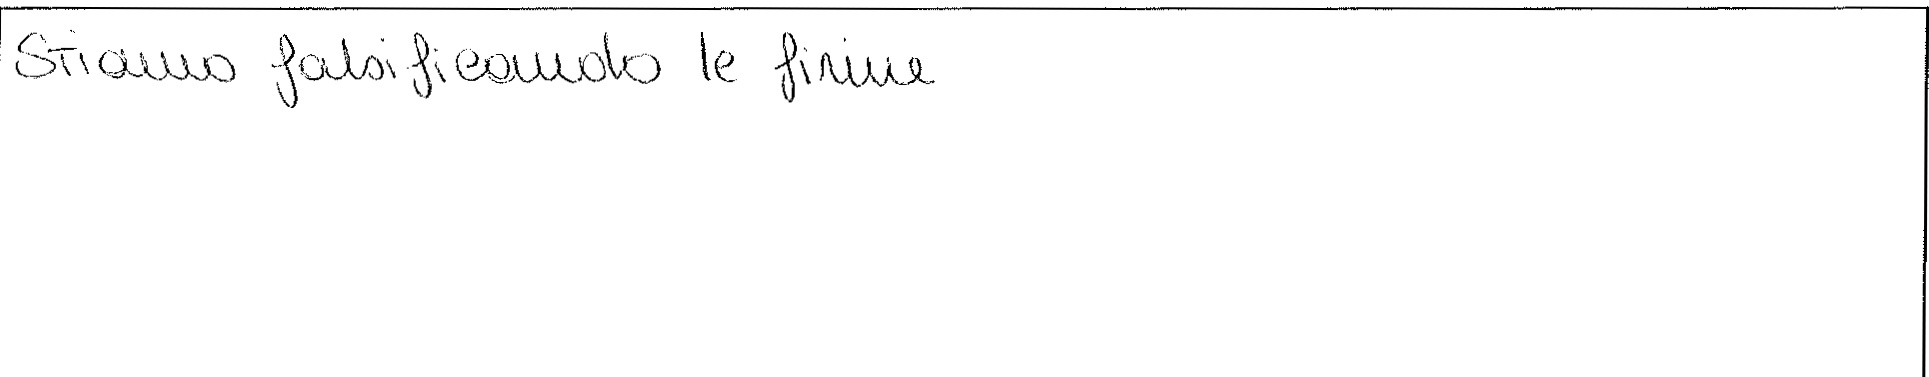 Stiamo falsificando le firme